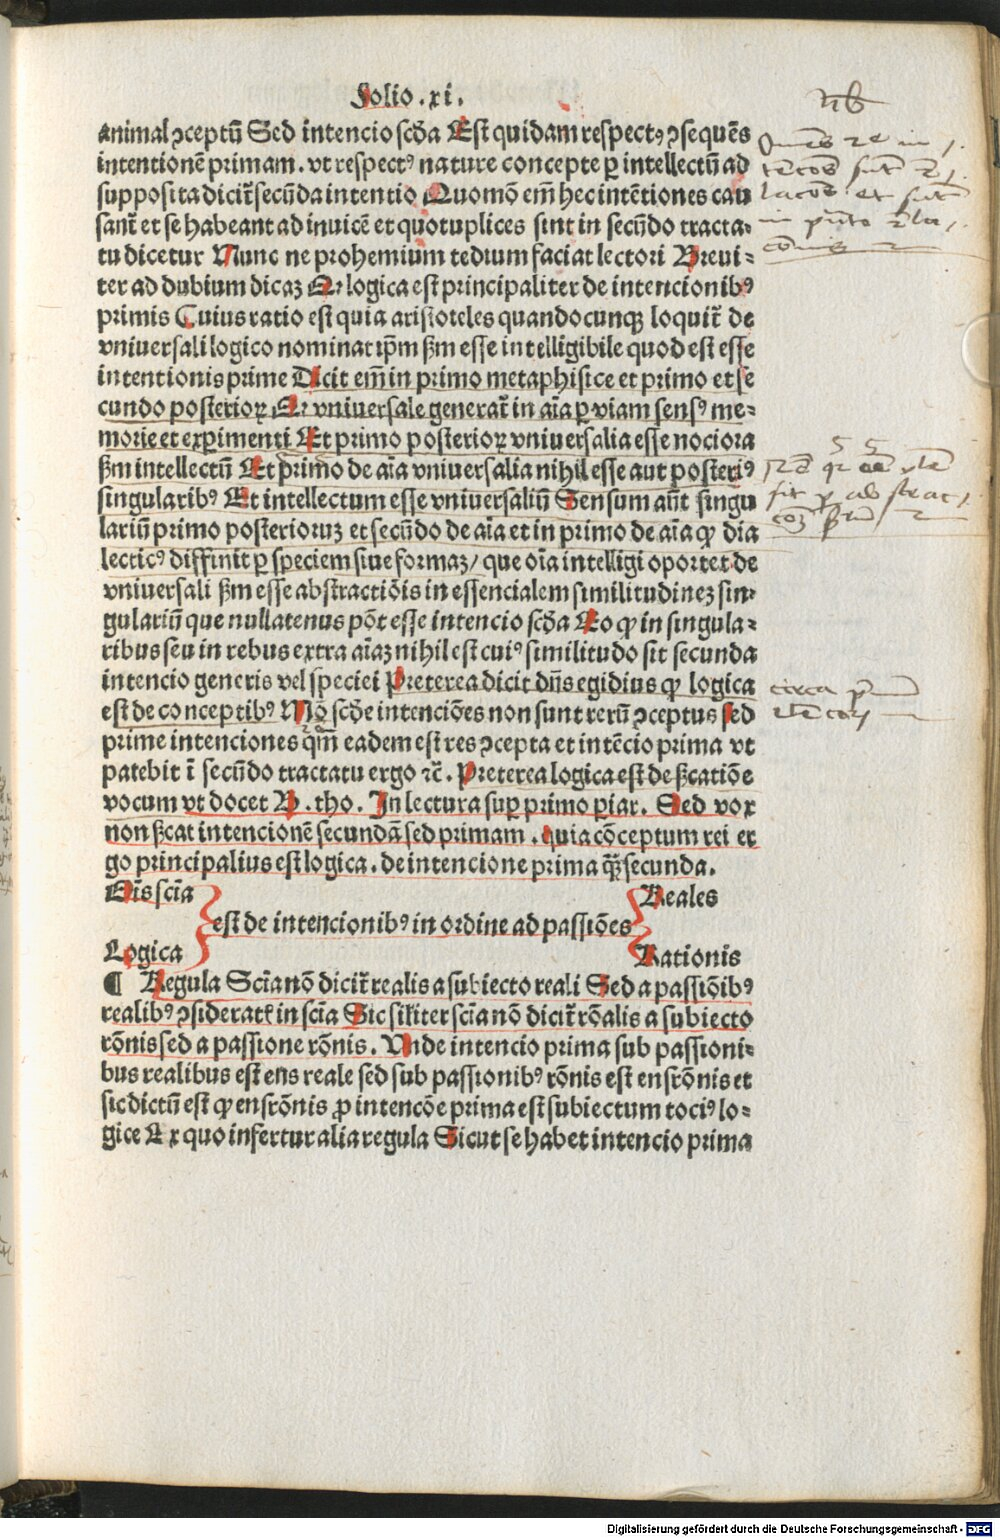 Folio .xi.
animal ꝯceptū Sed intencio scḋa Est quidam respectꝰ ꝯsequēs
intentionē primam. vt respectꝰ nature concepte ꝑ intellectū ad
supposita dicit̄ secūda intentio Quomō em̄ hec intētiones cau
sant̄ et se habeant ad inuicē et quotuplices sint in secūdo tracta⸗
tu dicetur Nunc ne prohemium tedium faciat lectori Breui⸗
ter ad dubium dicaꝫ Qꝛ logica est principaliter de intencionibꝰ
primis Cuius ratio est quia aristoteles quandocunqꝫ loquit̄ de
vniuersali logico nominat ip̄m ẜm esse intelligibile quod est esse
intentionis prime Dicit em̄ in primo metaphisice et primo et se
cundo posterioꝝ Qꝛ vniuersale generat̄ in aīa ꝑ viam sensꝰ me⸗
morie et exꝑimenti Et primo posterioꝝ vniuersalia esse nociora
ẜm intellectū Et primo de aīa vniuersalia nihil esse aut posteriꝰ
singularibꝰ Et intellectum esse vniuersaliū Sensum aūt singu
lariū primo posterioruꝫ et secūdo de aīa et in primo de aīa ꝙ dia
lecticꝰ diffinit ꝑ speciem siue formaꝫ/ que oīa intelligi oportet de
vniuersali ẜm esse abstractiōis in essencialem similitudineꝫ sin⸗
gulariū que nullatenus pōt esse intencio scḋa Eo ꝙ in singula⸗
ribus seu in rebus extra aīaꝫ nihil est cuiꝰ similitudo sit secunda
intencio generis vel speciei Preterea dicit dn̄s egidius ꝙ logica
est de conceptibꝰ Mō scḋe intenciōes non sunt rerū ꝯceptus sed
prime intenciones qm̄ eadem est res ꝯcepta et intēcio prima vt
patebit ī secūdo tractatu ergo ⁊c̄. Preterea logica est de ẜcatiōe
vocum vt docet B. tho. In lectura suꝑ primo ꝑiar. Sed vox
non ẜcat intencionē secundā sed primam. quia cōceptum rei er
go principalius est logica. de intencione prima qꝫ̄ secunda.
Oīs scīa
Reales
est de intencionibꝰ in ordine ad passiōes
Logica
Rationis
¶ Regula Scīa nō dicit̄ realis a subiecto reali Sed a passiōibꝰ
realibꝰ ꝯsideratꝭ in scīa Sic siliter scīa nō dicit̄ rōnalis a subiecto
rōnis sed a passione rōnis. Vnde intencio prima sub passioni⸗
bus realibus est ens reale sed sub passionibꝰ rōnis est ens rōnis et
sic dictū est ꝙ ens rōnis ꝓ intencōe prima est subiectum tociꝰ lo⸗
gice Ex quo infertur alia regula Sicut se habet intencio prima
Digitalisierung gefördert durch die Deutsche Forschungsgemeinschaft - DFG